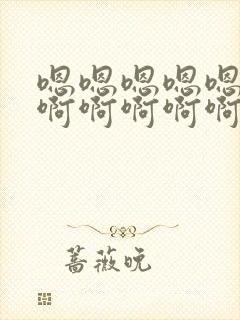 嗯嗯嗯嗯嗯
啊啊啊啊啊
蔷薇晥